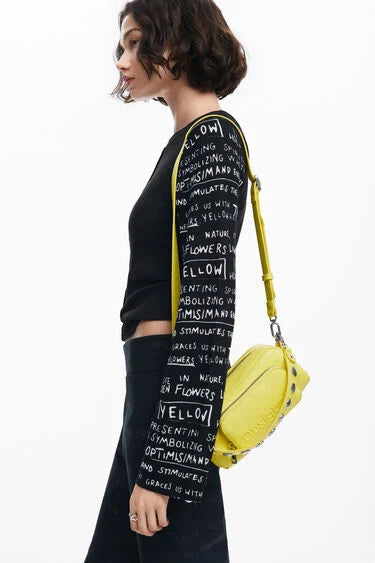 YELLOW
PRESENTING
SYMBOLIZING
OPTIMISIM AND
AND STIMULATES THE
GRACES US WITH
YELLOW
IN NATURE,
FLOWERS
YELLOW
PRESENTING
SYMBOLIZING
OPTIMISIM AND
AND STIMULATES
GRACES US WITH
FLOWERS, YELLOW
IN NATURE,
FLOWERS
YELLOW
PRESENTING
SYMBOLIZING
OPTIMISIM AND
AND STIMULATES
GRACES US WITH
Desigual